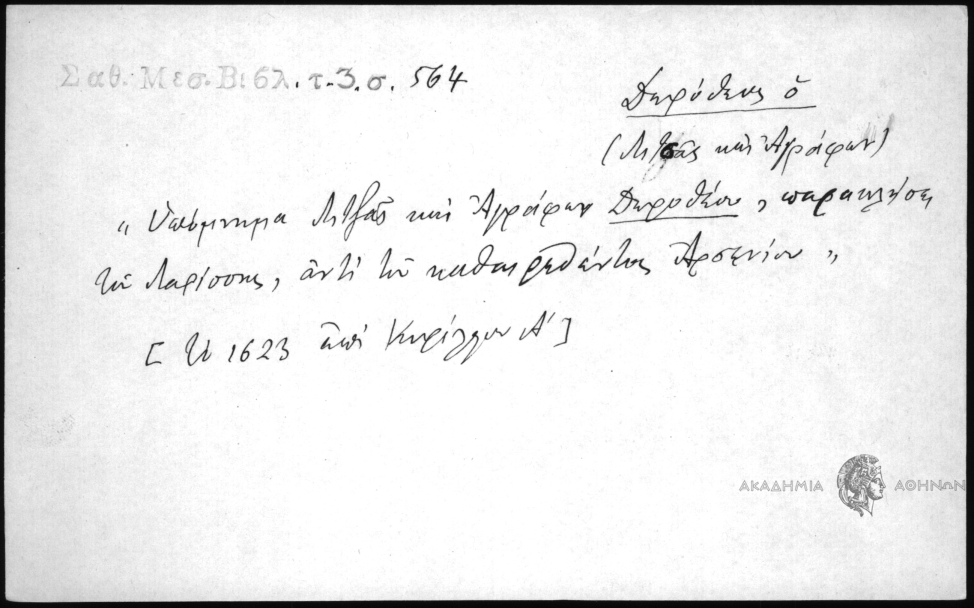 Σαθ. Μεσ. Βιβλ. τ. 3. σ. 564
Δωρόθεος ὁ
(Λιτζᾶς καὶ Ἀγράφων)
"Ὑπόμνημα Λιτζᾶς καὶ Ἀγράφων Δωροθέου, παρακλήσει
τοῦ Λαρίσσης, ἀντὶ τοῦ καθαιρεθέντος Ἀρσενίου"
[τοῦ 1623 ἐπὶ Κυρίλλου Α']
ΑΚΑΔΗΜΙΑ ΑΘΗΝΩΝ